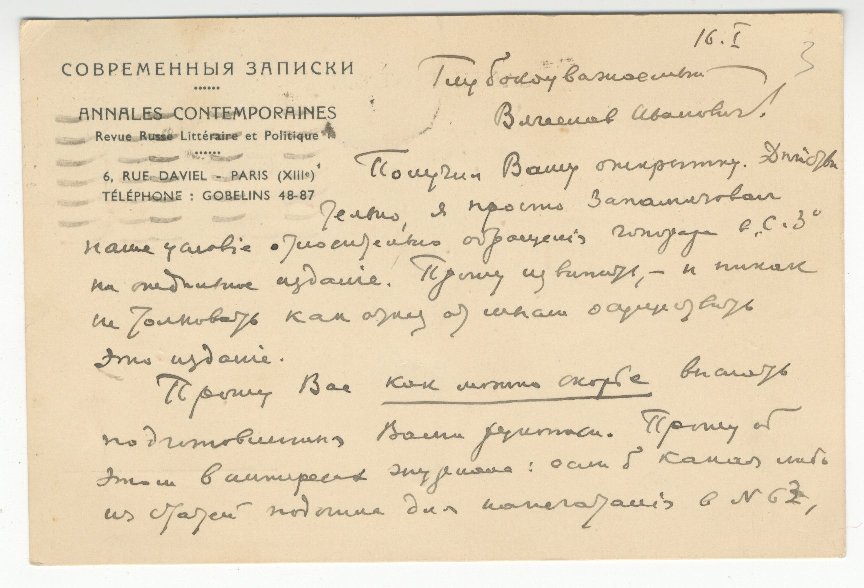 16. I
3
СОВРЕМЕННЫЯ ЗАПИСКИ
ANNALES CONTEMPORAINES
Revue Russe Littéraire et Politique
6, RUE DAVIEL - PARIS (XIIIe)
TÉLÉPHONE : GOBELINS 48-87
Глубокоуважаемый
Вячеслав Иванович!
Получил Вашу открытку. Действи
тельно, я просто запамятовал
наше условіе относительно обращенія гонорара в „С. З."
на отдельное издание. Прошу извинить, – и никак
не толковать как отказ от мысли осуществить
это изданіе.
Прошу Вас как можно скорее выслать
подготовленныя Вами рукописи. Прошу об
этом в интересах журнала: если б какая либо
из статей подошла для напечатанія в N 62,